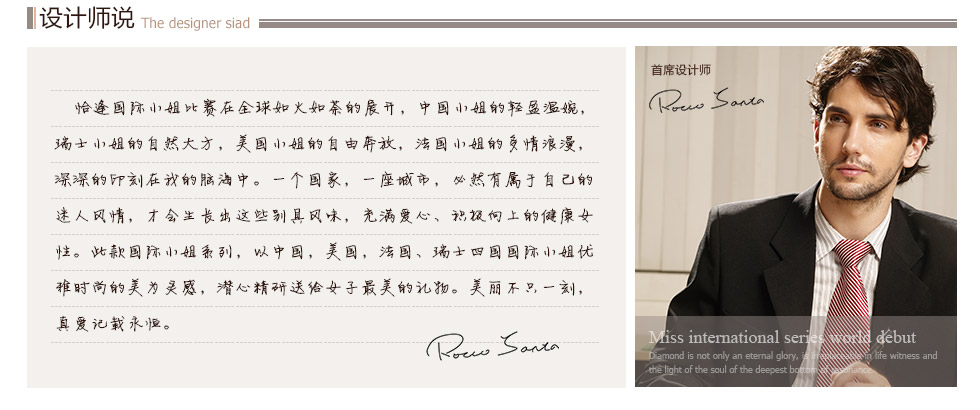 设计师说 The designer siad
恰逢国际小姐比赛在全球如火如荼的展开，中国小姐的轻盈温婉，
瑞士小姐的自然大方，美国小姐的自由奔放，法国小姐的多情浪漫，
深深的印刻在我的脑海中。一个国家，一座城市，必然有属于自己的
迷人风情，才会生长出这些别具风味，充满爱心、积极向上的健康女
性。此款国际小姐系列，以中国，美国，法国、瑞士四国国际小姐优
雅时尚的美为灵感，潜心精研送给女子最美的礼物。美丽不只一刻，
真爱记载永恒。
Rocco Santa
首席设计师
Rocco Santa
Miss international series world debut
Diamond is not only an eternal glory, is irreplaceable in life witness and
the light of the soul of the deepest bottom of resonance.